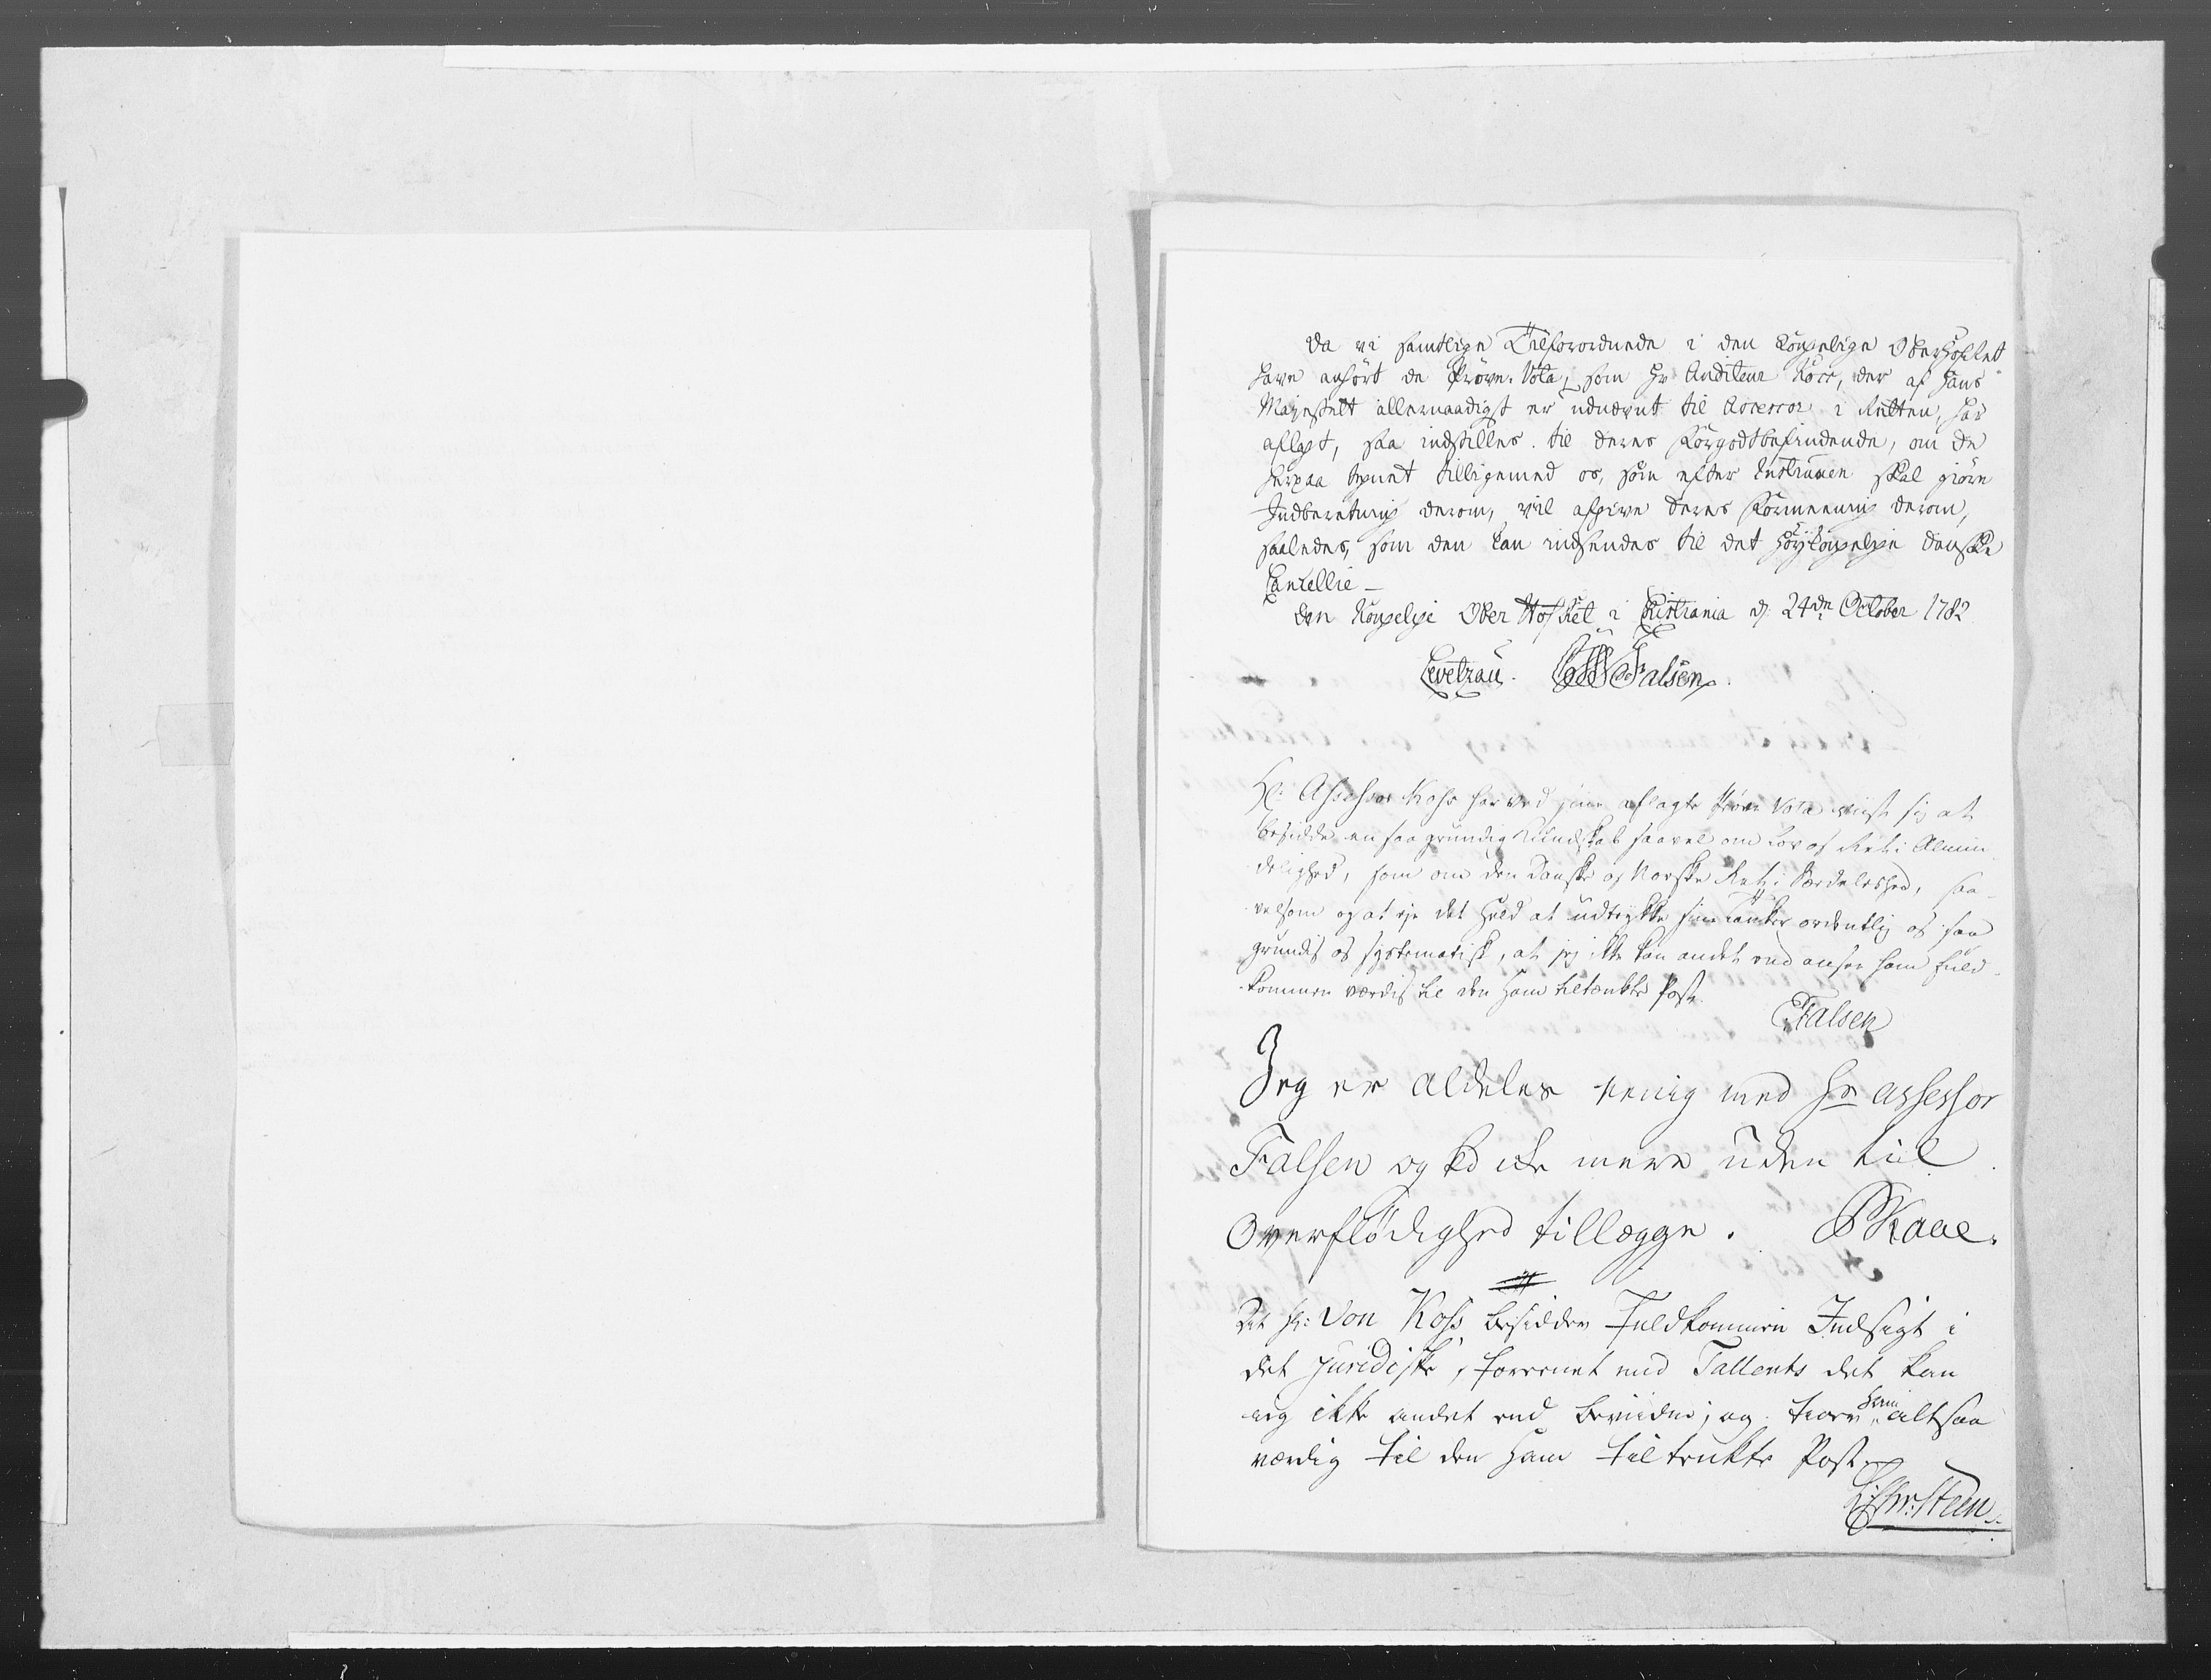 Da vi samtlige Tilforordnede i den Kongelige OberHofRet
have anhört de Pröve-Vota, som Hr Auditeur Koss, der af Hans
Majestett allernaadigst er udnævnt til Assessor i Retten, har
aflagt, saa indstilles til deres Forgodtbefindende, om De
herpaa tegnet tilligemed os, som efter Instruxen skal giöre
Indberetning derom, vil afgive deres Formeening derom,
saaledes, som den kan indsendes til det Höykongelige danske
Cancellie –
Den Kongelige Ober HofRet i Christiania d. 24de October 1782
Levetzau. Falsen.
Hr: Assessor Koss har ved sine aflagte Pröve Vota viist sig at
besidde en saa grundig Kundskab saavel om Lov og Ret i Almin
delighed, som om den Danske og Norske Ret i Særdeleshed, saa
velsom og at eje det Held at udtrykke sine Tanker ordentlig og saa
grundig og systematisk, at jeg ikke kan andet end ansee ham fuld
kommen værdig til den Ham tiltænkte Post.
Falsen
Jeg er aldeles eenig med Hr assessor
Falsen og ved ikke mere uden til
Overflödighed tillægge. Kaae.
At Hr: Von Koss besidder Fuldkommen Indsigt i
det Juridiske, foreenet med Tallents det kan
ieg ikke andet end bevidne; og troer ham altsaa
værdig til den Ham tiltænkte Post.
Chr: Steen